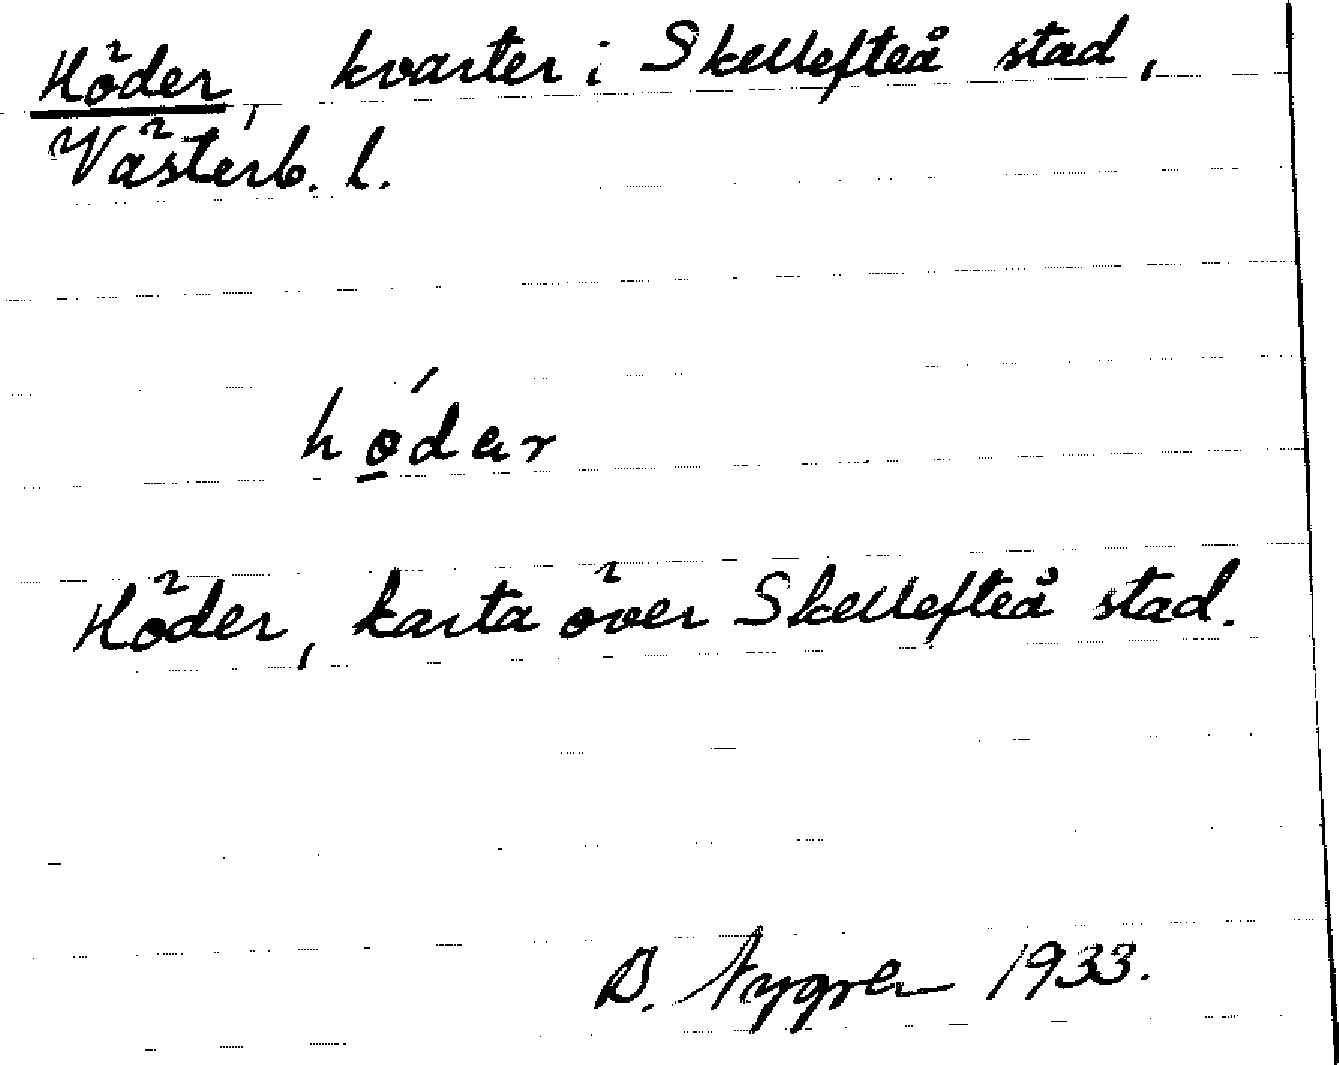 Höder, kvarter i Skellefteå stad,
Västerb. l.
hǿ̱dər
Höder, karta över Skellefteå stad.
B. Nygren 1933.